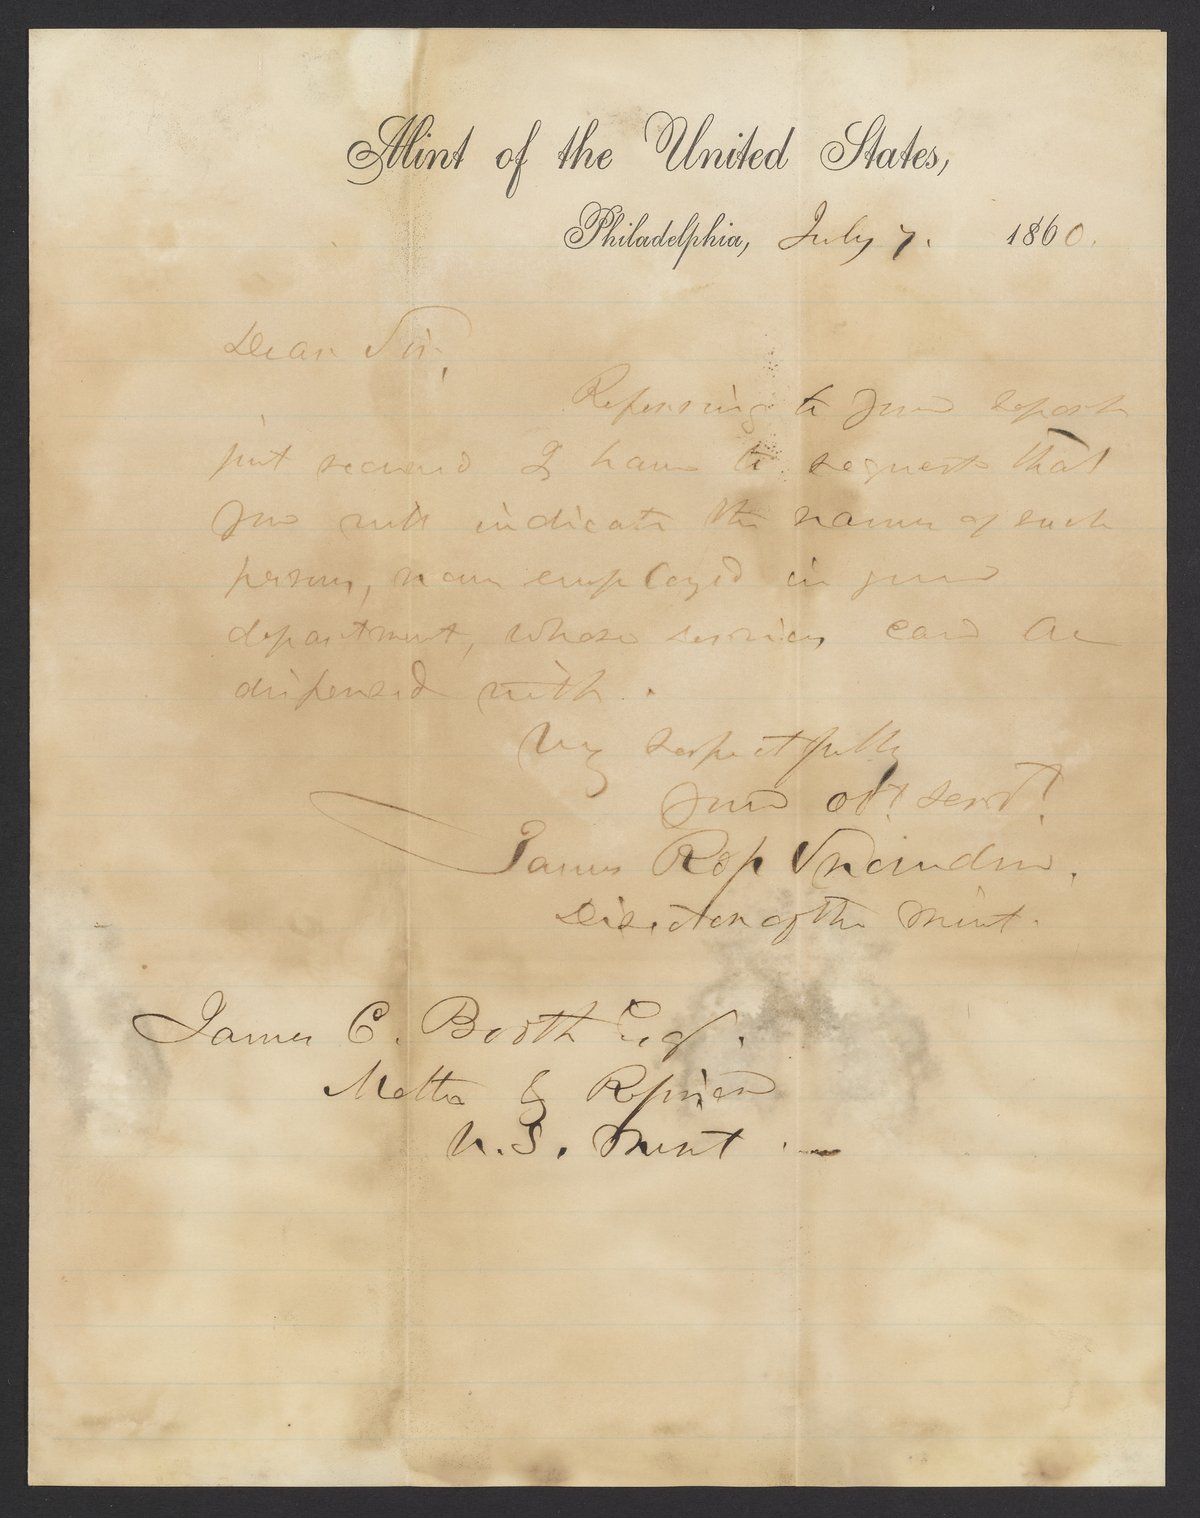 Mint of the United States,
Philadelphia, July 7. 1860.
Dear Sir,
Referring to your report
just received I have to request that
you will indicate the names of such
persons, now employed in your
department, whose services can be
dispensed with.
Very respectfully
Your obt. servt.
James Ross Snowden.
Director of the Mint.
James C. Booth Esq.
Melter & Refiner
U.S. Mint. —